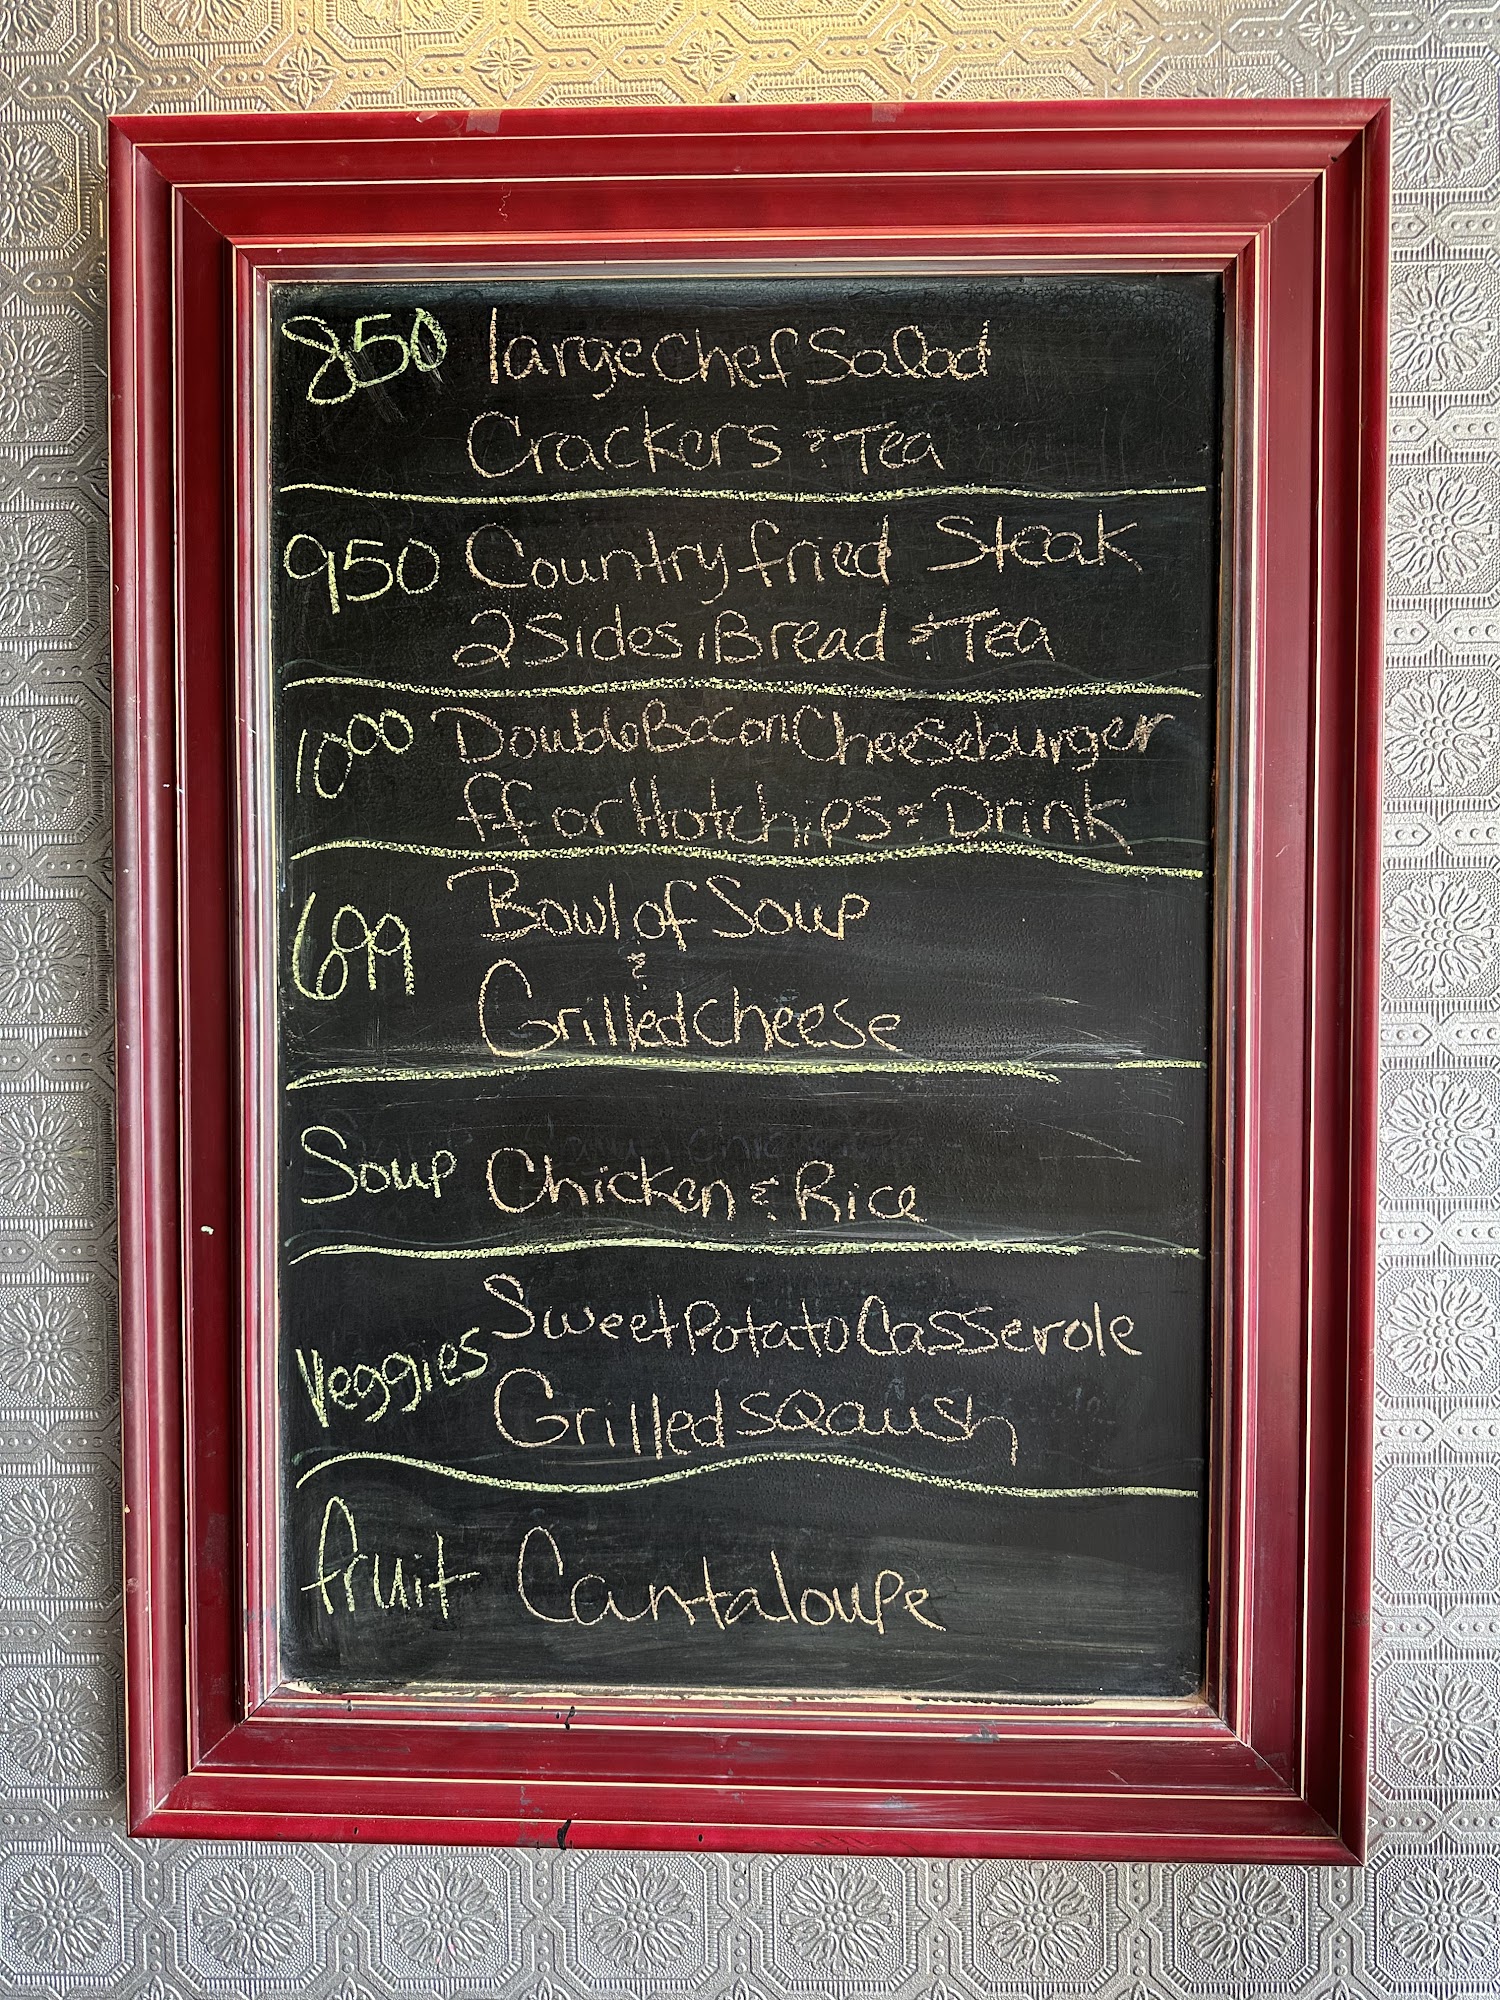 850 large Chef Salad
Crackers & Tea
950 Country fried Steak
2 Sides, Bread & Tea
1000 Double Bacon Cheeseburger
ff or Hot chips & Drink
699 Bowl of Soup
&
Grilled Cheese
Soup Chicken & Rice
Sweet Potato Casserole
Veggies
Grilled sqaush
fruit Cantaloupe